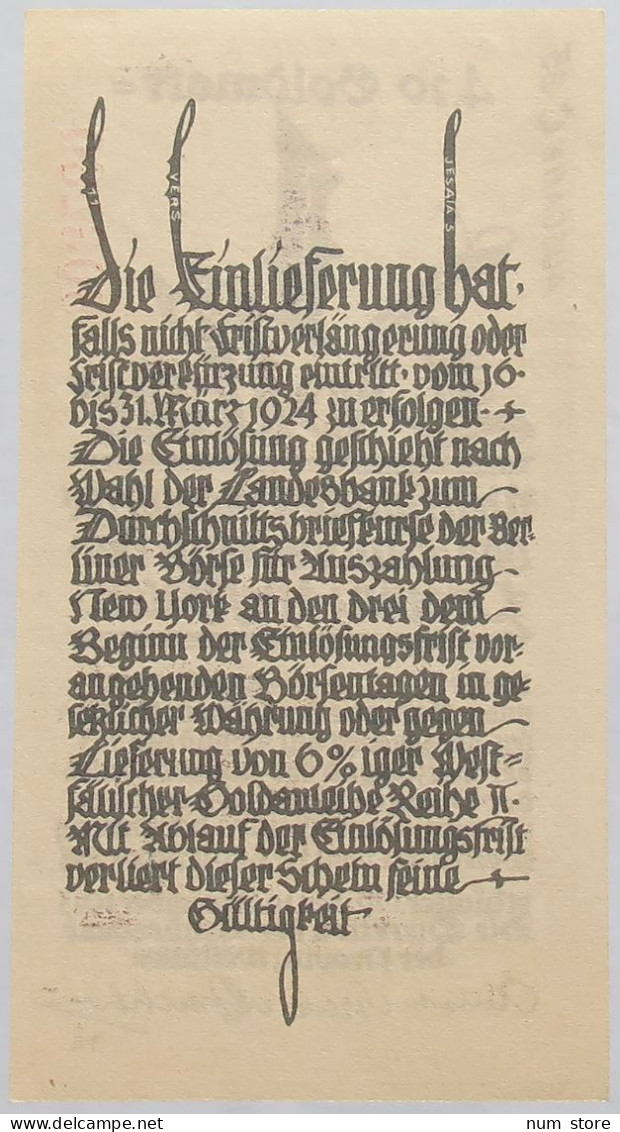 VERS
JESAIA 5
Die Einlieferung hat,
falls nicht Fristverlängerung oder
Fristverkürzung eintritt, vom 16.
bis 31. März 1924 zu erfolgen.
Die Einlösung geschieht nach
Wahl der Landesbank zum
Durchschnittsbriefkurse der Ber-
liner Börse für Auszahlung
New York an den drei dem
Beginn der Einlösungsfrist vor-
angehenden Börsentagen in ge-
setzlicher Währung oder gegen
Lieferung von 6%iger West=
fälischer Goldanleihe Reihe II.
Mit Ablauf der Einlösungsfrist
verliert dieser Schein seine
Gültigkeit
num store